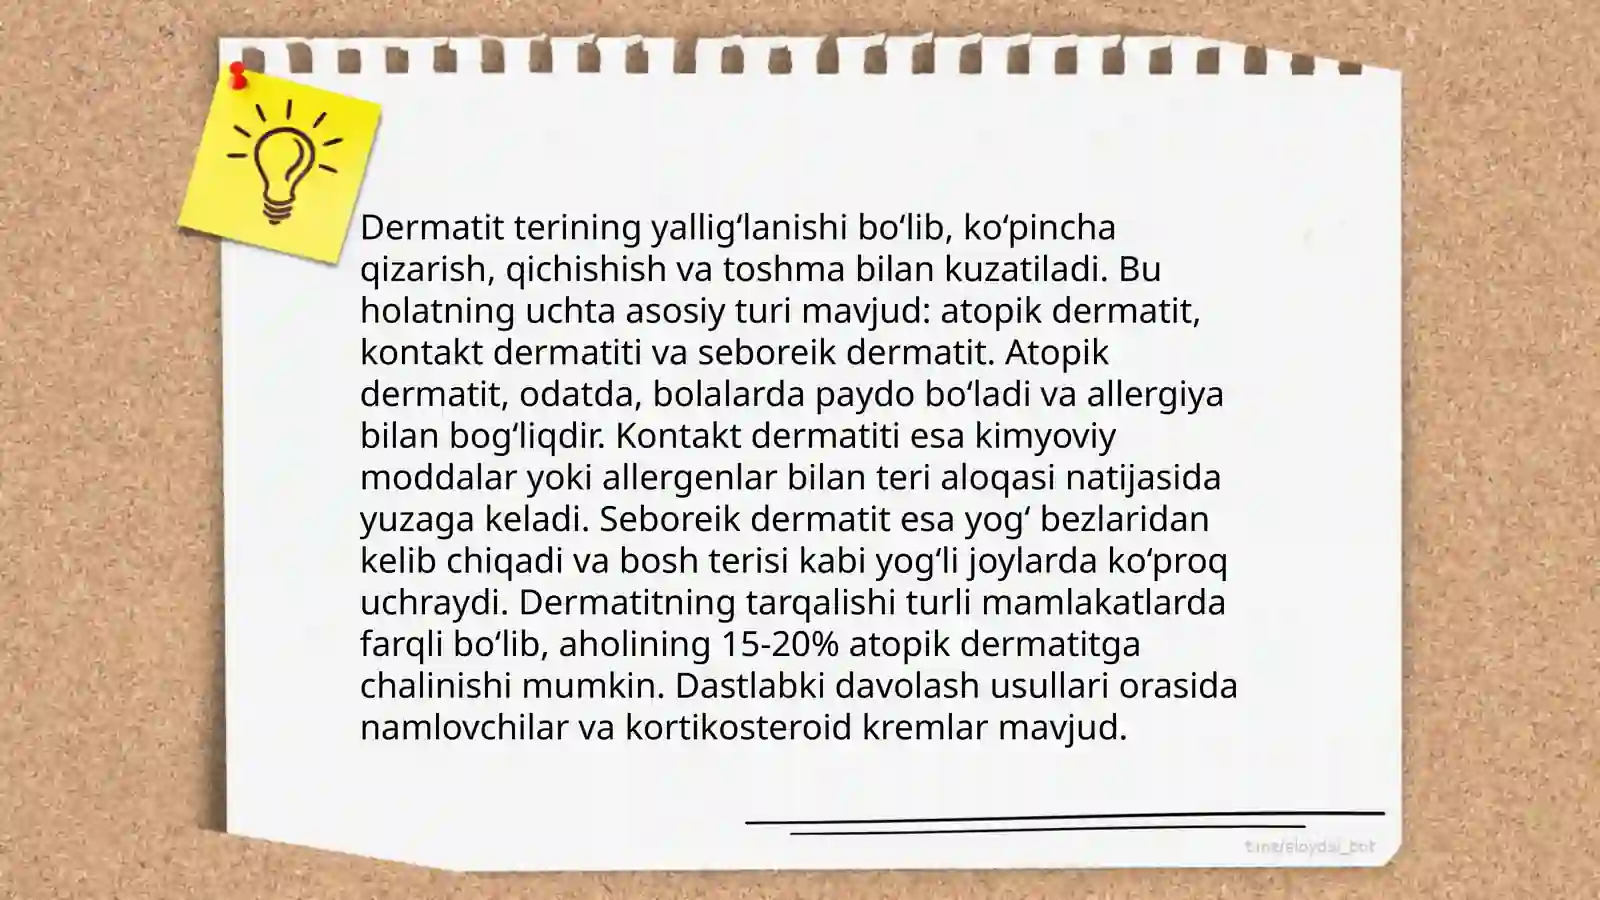 Dermatit terining yalligʻlanishi boʻlib, koʻpincha
qizarish, qichishish va toshma bilan kuzatiladi. Bu
holatning uchta asosiy turi mavjud: atopik dermatit,
kontakt dermatiti va seboreik dermatit. Atopik
dermatit, odatda, bolalarda paydo boʻladi va allergiya
bilan bogʻliqdir. Kontakt dermatiti esa kimyoviy
moddalar yoki allergenlar bilan teri aloqasi natijasida
yuzaga keladi. Seboreik dermatit esa yogʻ bezlaridan
kelib chiqadi va bosh terisi kabi yogʻli joylarda koʻproq
uchraydi. Dermatitning tarqalishi turli mamlakatlarda
farqli boʻlib, aholining 15-20% atopik dermatitga
chalinishi mumkin. Dastlabki davolash usullari orasida
namlovchilar va kortikosteroid kremlar mavjud.